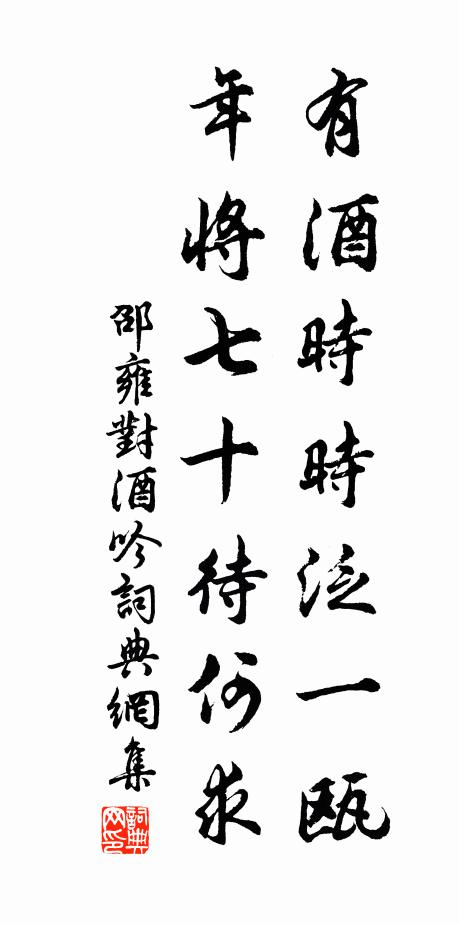 有酒時時泛一甌
年將七十待何求
邵雍對酒吟詞典網集
詞典網印